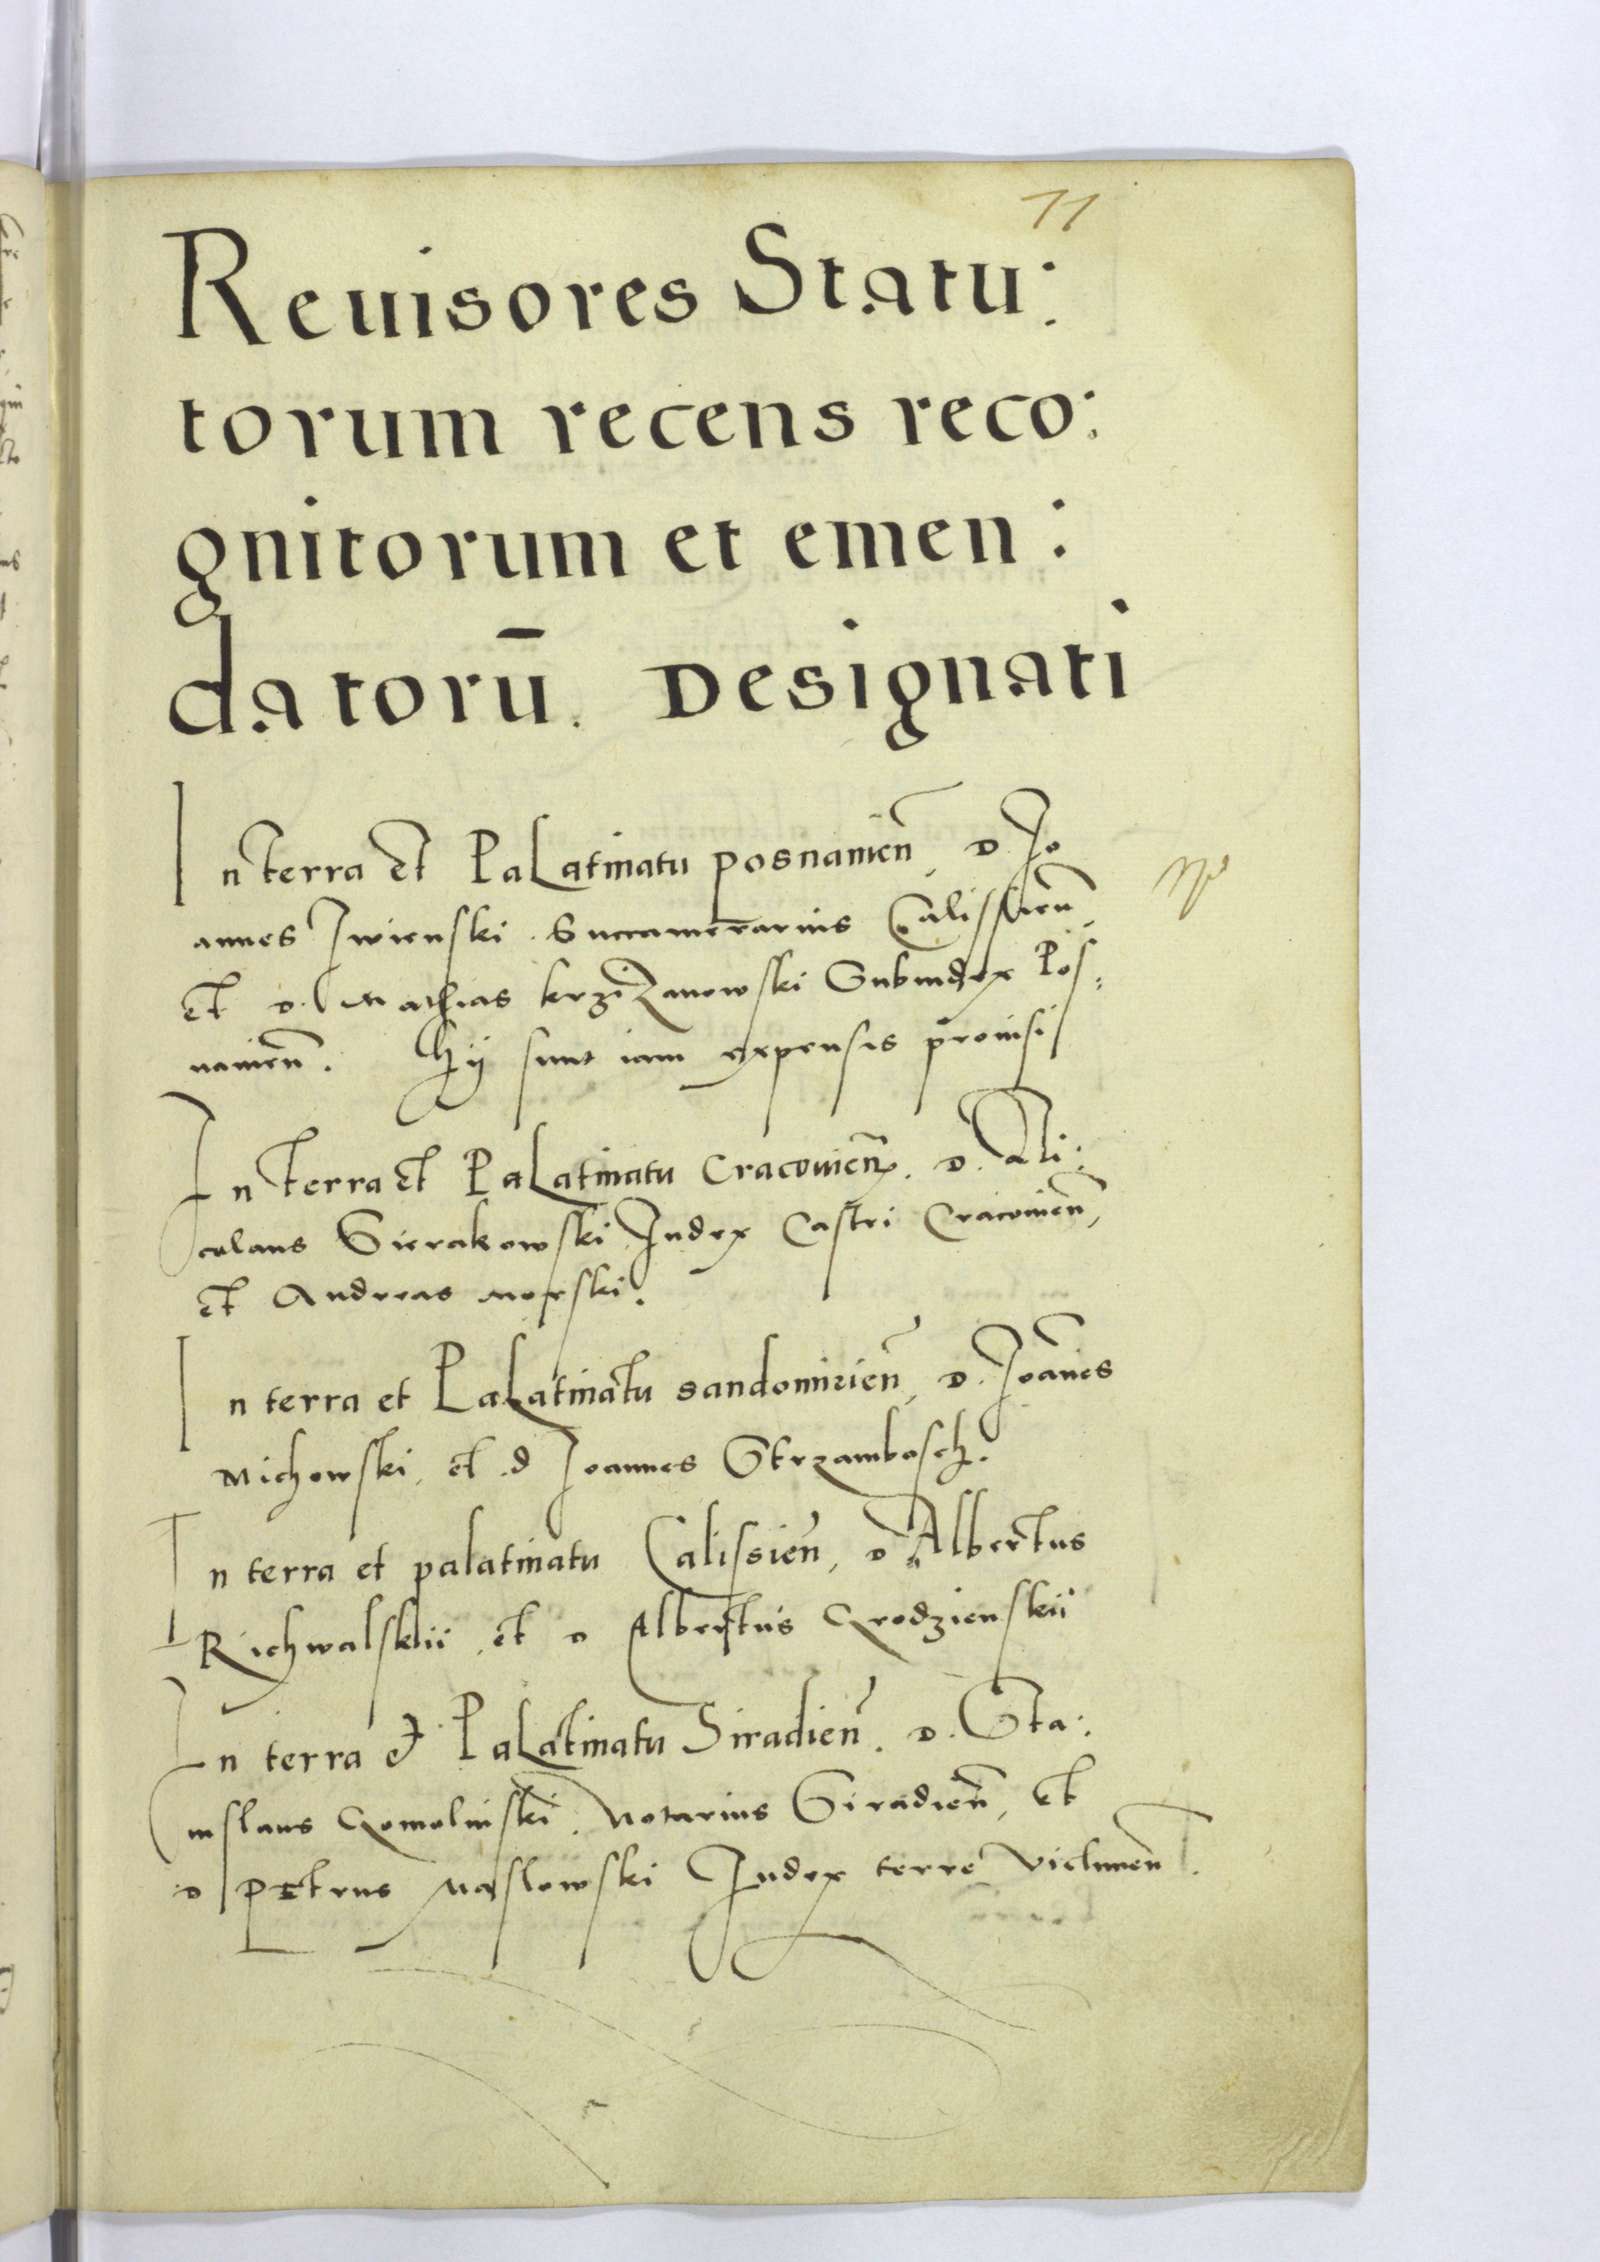 11
Reuisores Statu:
torum recens reco:
gnitorum et emen:
datorū. Designati
In terra et Palatinatu posnanien̄, D. Jo
annes Iwienski. Succamerarius Calissien̄,
et D. Mathias krziZanowski Subiudex Pos:
nanien̄. Hij sunt iam expensis prouisi
In terra et Palatinatu Cracouien̄. D. Ni:
colaus Sierakowski Iudex Castri Cracouien̄,
et Andreas morski.
In terra et Palatinatu sandomirien̄, D. Joān̄es
Michowski, et d Joannes Strzambosch.
In terra et palatinatu Calissien̄, D Albertus
Richwalskii, et D Albertus Grodzienskii
In terra et Palatinatu Siradien̄. D. Sta:
nislaus Gomolinski. Notarius Siradien̄, et
D PEtrus Maslowski Iudex terre Vielunen̄.